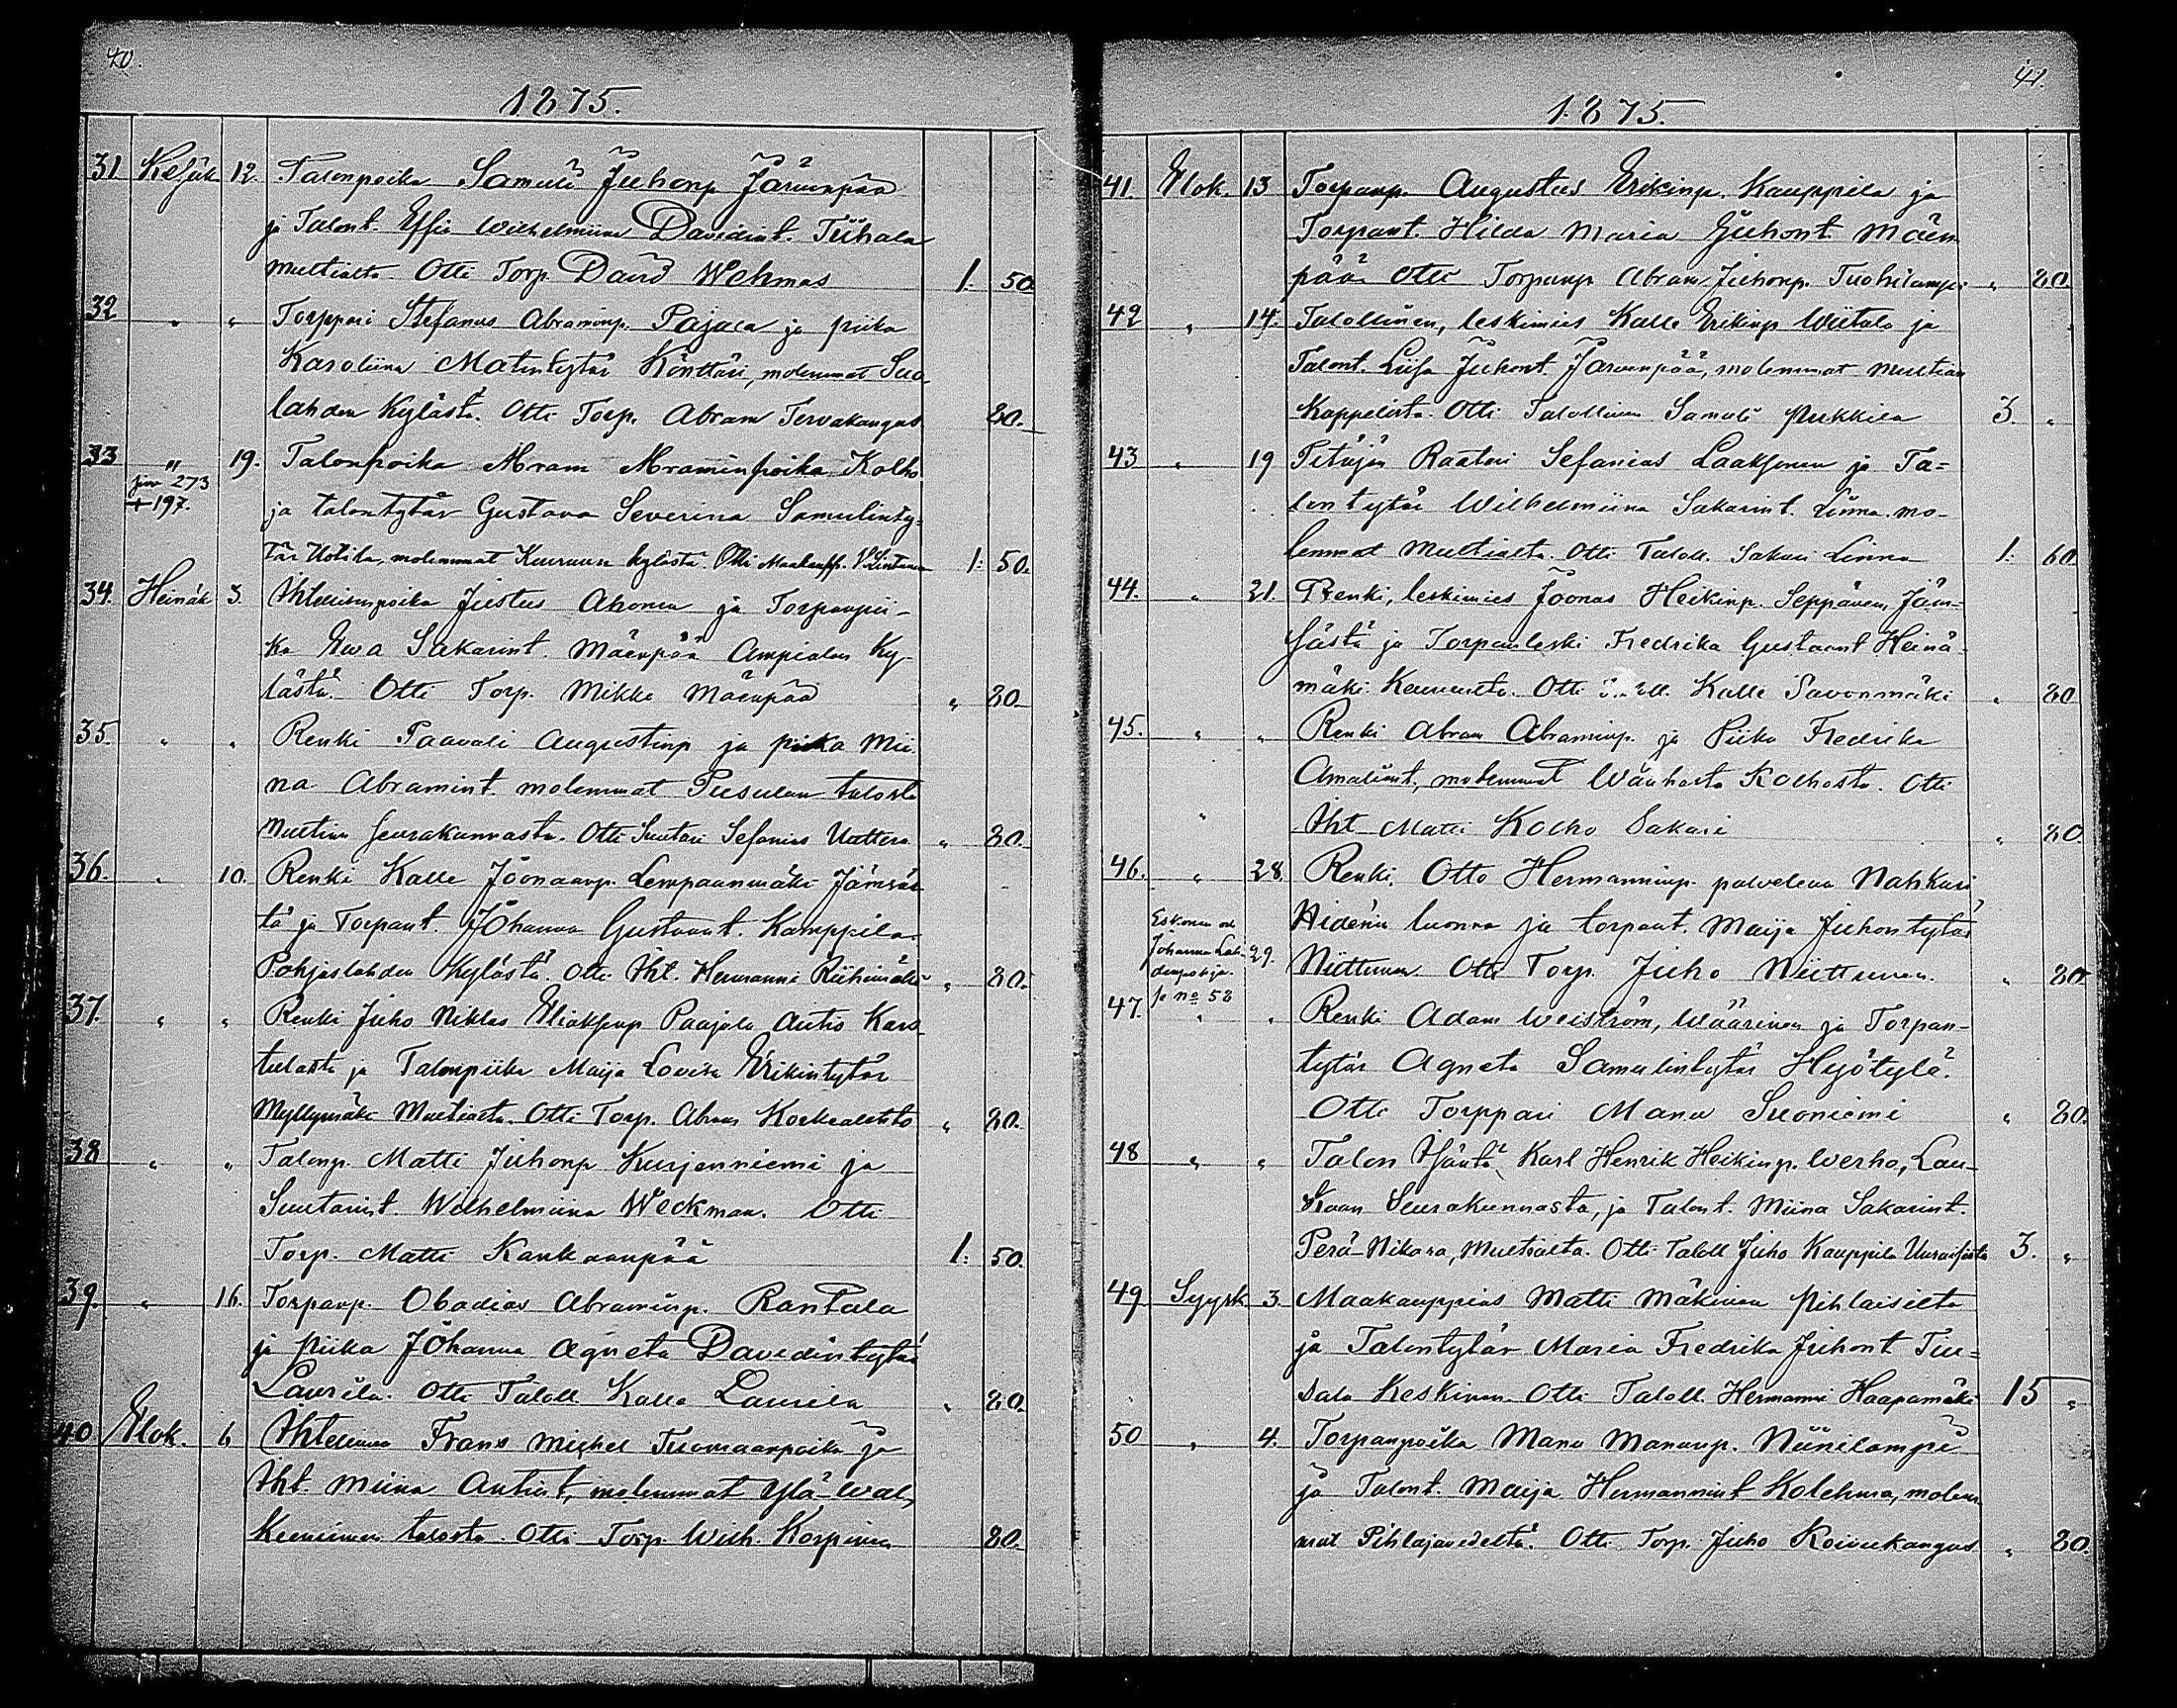 40.
1875.
31 Kesäk. 12. Talonpoika Samuli Juhonp Järvenpää
ja Talont. Effia Wilhelmiina Davidint. Tiihala
Multialta. Otti Torp. David Wehmas 1: 50.
32 " " Torppari Stefanus Abraminp. Pajala ja piika
Karoliina Matintytär Könttäri, molemmat Suo
lahden Kylästä. Otti Torp. Abram Tervakangas 80.
33 " 19. Talonpoika Abram Abraminpoika Kolho
siv 273
+ 197.
ja talontytär Gustava Severina Samulinty-
tär Uotila, molemmat Keuruun kylästä. Otti Maakaupp. 1: 50.
34. Heinäk 3. Ihtellisenpoika Justus Ahonen ja Torpanpii-
ka Ewa Sakarint. Mäenpää Ampialan Ky-
lästä. Otti Torp. Mikko Mäenpää " 80.
35. " " Renki Paavali Augustinp ja piika Mii
na Abramint. molemmat Pusulan talosta
Multian seurakunnasta. Otti Suutari Sefanias Uattera " 80.
36. " 10. Renki Kalle Joonaanp. Lempaanmäki Jämsäs
tä ja Torpant. Johanna Gustaant. Kamppila
Pohjaslahden Kylästä. Otti Iht. Hermanni Riihimäki " 80.
37. " " Renki Juho Niklas Eliaksenp Paajala Autio Kars
tulasta ja Talonpiika Maija Lovisa Erikintytär
Myllymäki Multialta. Otti Torp. Abram Korkealehto " 80.
38 " " Talonp. Matti Juhonp Kurjenniemi ja
Suutarint. Wilhelmiina Weckman. Otti
Torp. Matti Kankaanpää 1: 50.
39. " 16. Torpanp. Obadias Abraminp. Rantala
ja piika Johanna Agneta Davidintytär
Laurila. Otti Taloll. Kalle Laurila " 80.
40 Elok. 6 Ihtellinen Frans Michel Tuomaanpoika ja
Iht. Miina Antint, molemmat Ylä-Wal
keeniemen talosta. Otti Torp Wilh. Korpinen 80.
41.
1875.
41. Elok. 13 Torpanp. Augustus Erikinp. Kauppila ja
Torpant. Hilda Maria Juhont. Mäen
pää. Otti Torpanp Abram Juhonp. Tuohilampi " 80.
42 " 14. Talollinen, leskimies Kalle Erikinp Wiitala ja
Talont. Liisa Juhont. Järvenpää, molemmat Multian
Kappelista. Otti Talollinen Samuli Pukkila 3. "
43 " 19 Pitäjän Räätäri Sefanias Laaksonen ja Ta=
lontytär Wilhelmiina Sakarint. Linna. mo-
lemmat Multialta. Otti Taloll. Sakari Linna 1: 60.
44. " 21. Renki, leskimies Joonas Heikinp. Seppänen, Jäm-
sästä ja Torpanleski Fredrika Gustaant Heinä-
mäki Keuruulta. Otti Taloll. Kalle Savonmäki " 80
45. " " Renki Abram Abraminp. ja Piika Fredrika
Amaliant, molemmat Wanhasta Kolhosta. Otti
" Iht Matti Kolho Sakari " 80.
46. " 28. Renki. Otto Hermanninp. palveleva Nahkuri
Hidénin luonna ja torpant. Maija Juhontytär
Eskonen od
Johanna
29.
Niittunen. Otti Torp. Juho Niittunen. " 80
se no 58
47. " " Renki Adam Weiström, Wäärinen ja Torpan-
tytär Agneta Samulintytär Hyötylä.
Otti Torppari Manu Suoniemi " 80.
48 " " Talon Isäntä Karl Henrik Heikinp. Werho, Lau-
kaan Seurakunnasta, ja Talont. Miina Sakarint.
Perä-Nikara, Multialta. Otti Taloll Juho Kauppila Uuraisista 3. "
49 Syysk 3. Maakauppias Matti Mäkinen Pihlaisilta
ja Talontytär Maria Fredrika Juhont Tiu=
sala Keskinen. Otti Taloll. Hermanni Haapamäki 15 "
50 " 4. Torpanpoika Manu Mananp. Niinilampi
ja Talont. Maija Hermannint Kolehma, molem
mat Pihlajavedeltä. Otti Torp. Juho Koivukangas " 80.